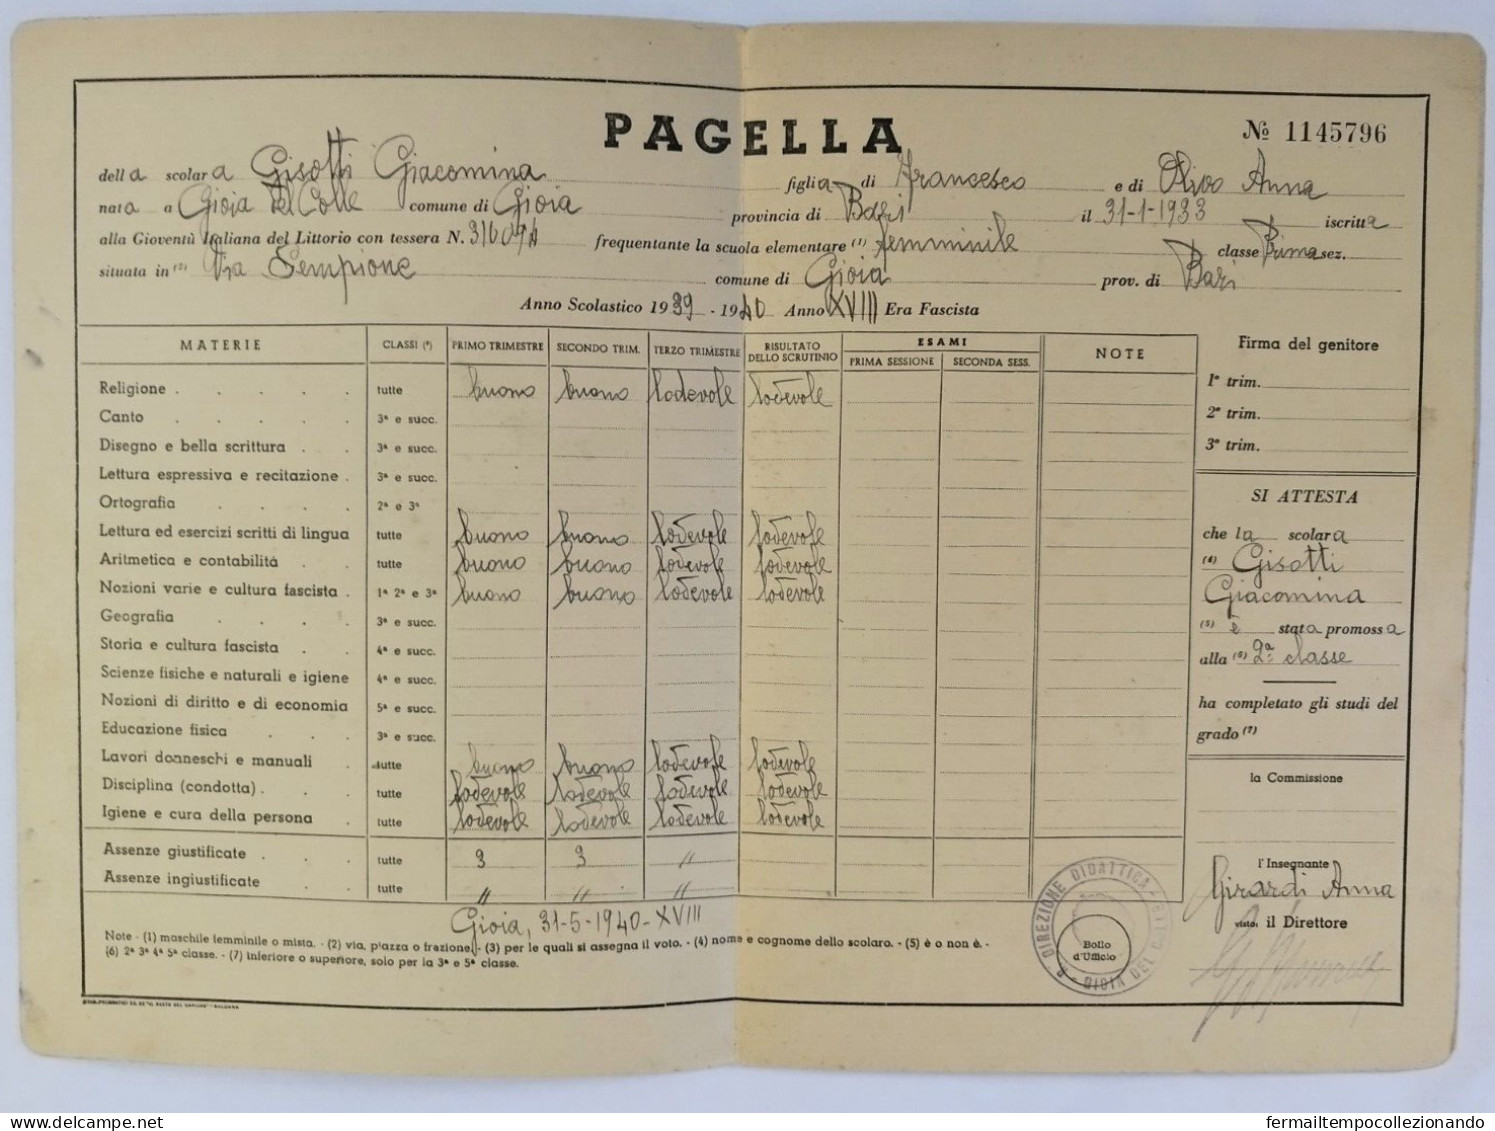 PAGELLA
Nº 1145796
della scolara Gisotti Giacomina figlia di Francesco e di Olivo Anna
nata a Gioia del Colle comune di Gioia provincia di Bari il 31-1-1933 iscritta
alla Gioventù Italiana del Littorio con tessera N. frequentante la scuola elementare (1) femminile classe Prima sez.
situata in (2) Via Sempione comune di Gioia prov. di Bari
Anno Scolastico 1939 - 1940 Anno XVIII Era Fascista
MATERIE CLASSI (*) PRIMO TRIMESTRE SECONDO TRIM. TERZO TRIMESTRE RISULTATO DELLO SCRUTINIO ESAMI PRIMA SESSIONE SECONDA SESS. NOTE
Religione . . . . . tutte buono buono lodevole lodevole
Canto . . . . . 3ª e succ.
Disegno e bella scrittura . . 3ª e succ.
Lettura espressiva e recitazione . 3ª e succ.
Ortografia . . . . 2ª e 3ª
Lettura ed esercizi scritti di lingua tutte buono buono lodevole lodevole
Aritmetica e contabilità . . tutte buono buono lodevole lodevole
Nozioni varie e cultura fascista . 1ª 2ª e 3ª buono buono lodevole lodevole
Geografia . . . . 3ª e succ.
Storia e cultura fascista . . 4ª e succ.
Scienze fisiche e naturali e igiene 4ª e succ.
Nozioni di diritto e di economia 5ª e succ.
Educazione fisica . . . 3ª e succ.
Lavori donneschi e manuali . tutte buono buono lodevole lodevole
Disciplina (condotta) . . . tutte lodevole lodevole lodevole lodevole
Igiene e cura della persona . tutte lodevole lodevole lodevole lodevole
Assenze giustificate . . . tutte 3 3 //
Assenze ingiustificate . . tutte // // //
Gioia, 31-5-1940-XVIII
Note - (1) maschile femminile o mista. - (2) via, piazza o frazione. - (3) per le quali si assegna il voto. - (4) nome e cognome dello scolaro. - (5) è o non è. -
(6) 2ª 3ª 4ª 5ª classe. - (7) inferiore o superiore, solo per la 3ª e 5ª classe.
Firma del genitore
1º trim.
2º trim.
3º trim.
SI ATTESTA
che la scolara
(4) Gisotti
Giacomina
(5) è stata promossa
alla (6) 2ª classe
ha completato gli studi del
grado (7)
la Commissione
l'Insegnante
Girardi Anna
visto, il Direttore
DIREZIONE DIDATTICA
GIOIA DEL
Bollo
d'Ufficio
fermailtempocollezionando